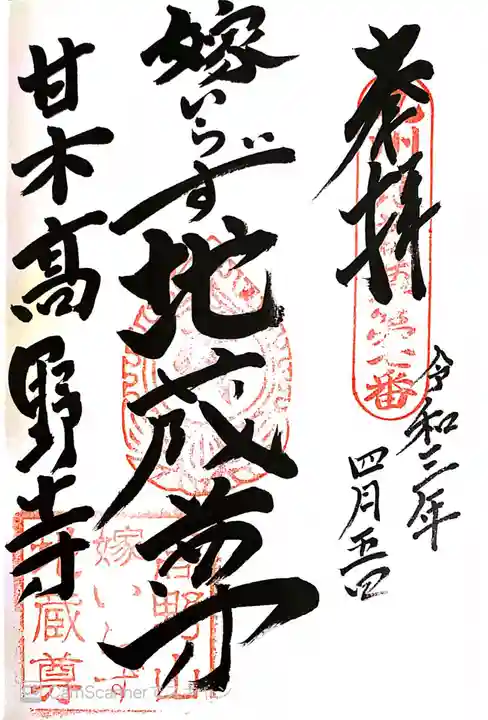 奉拝
令和三年
四月五日
嫁いらず
地蔵尊
甘木高野寺
第六番
高野山
嫁いらず
地蔵尊
CamScanner でスキャン